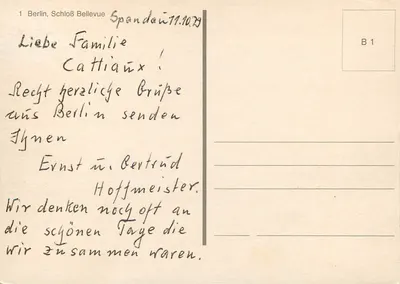 1 Berlin, Schloß Bellevue
Spandau 11.10.79
Liebe Familie
Cattiaux!
Recht herzliche Grüße
aus Berlin senden
Ihnen
Ernst u. Gertrud
Hoffmeister.
Wir denken noch oft an
die schönen Tage die
wir zusammen waren.
B 1